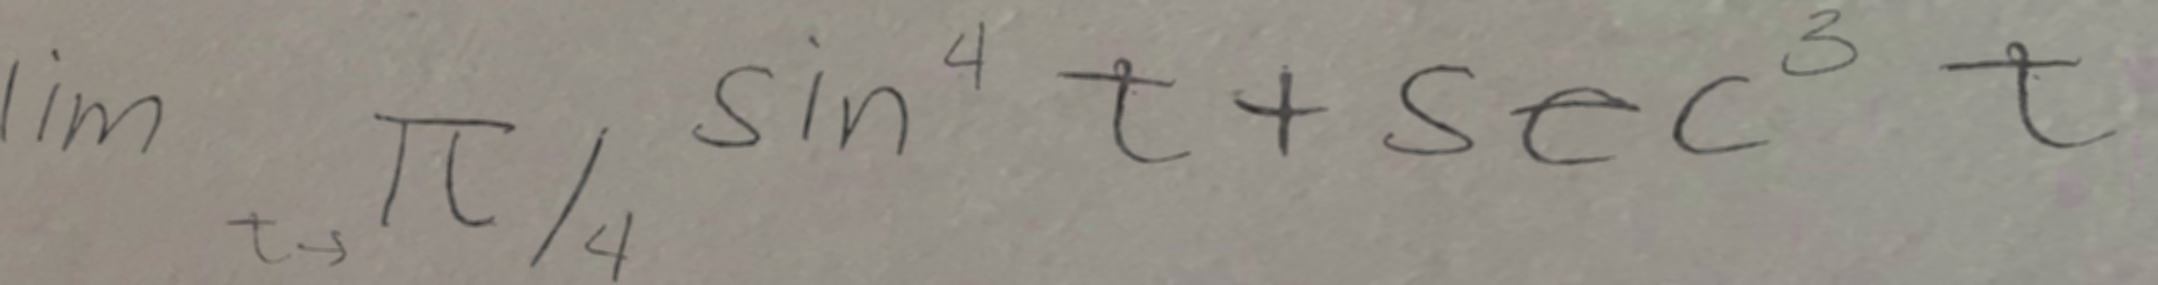 lim t→π/4 sin⁴ t + sec³ t